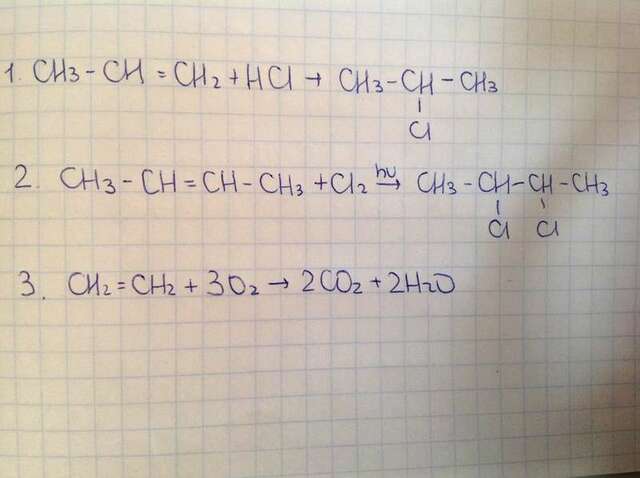 1. CH3-CH=CH2+HCl→ CH3-CH-CH3
|
Cl
2. CH3-CH=CH-CH3+Cl2 hν→ CH3-CH-CH-CH3
| |
Cl Cl
3. CH2=CH2+3O2→2CO2+2H2O